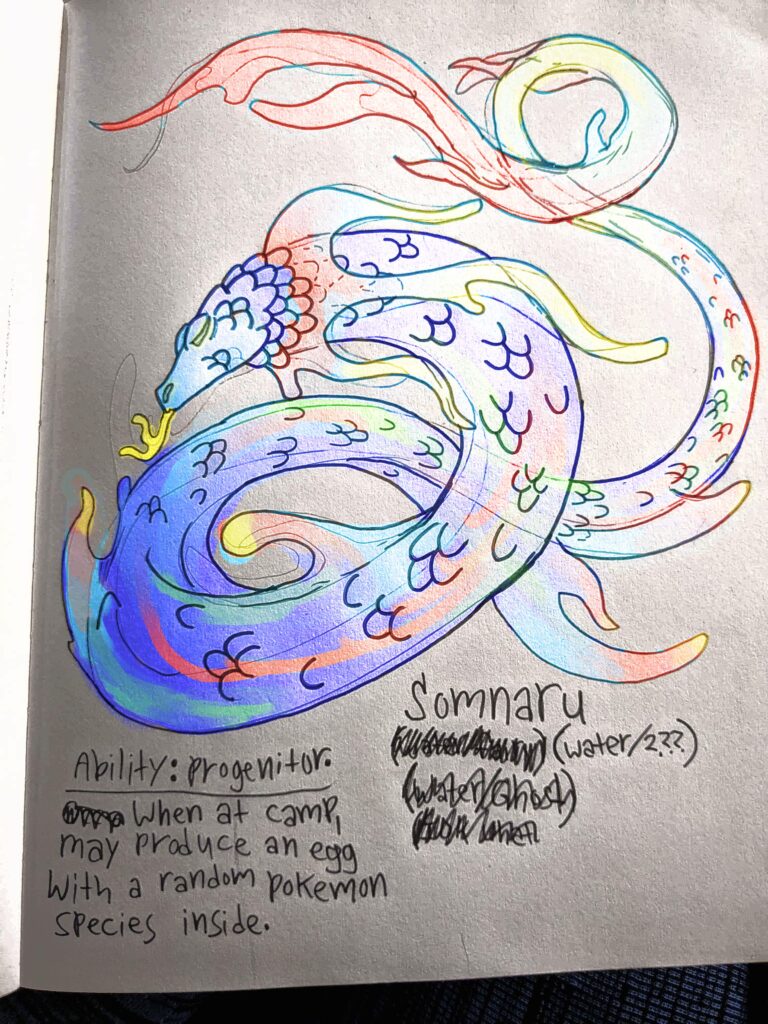 Somnaru
(water/???)
(water/Ghost)
Ability: progenitor.
When at camp,
may produce an egg
With a random pokemon
species inside.